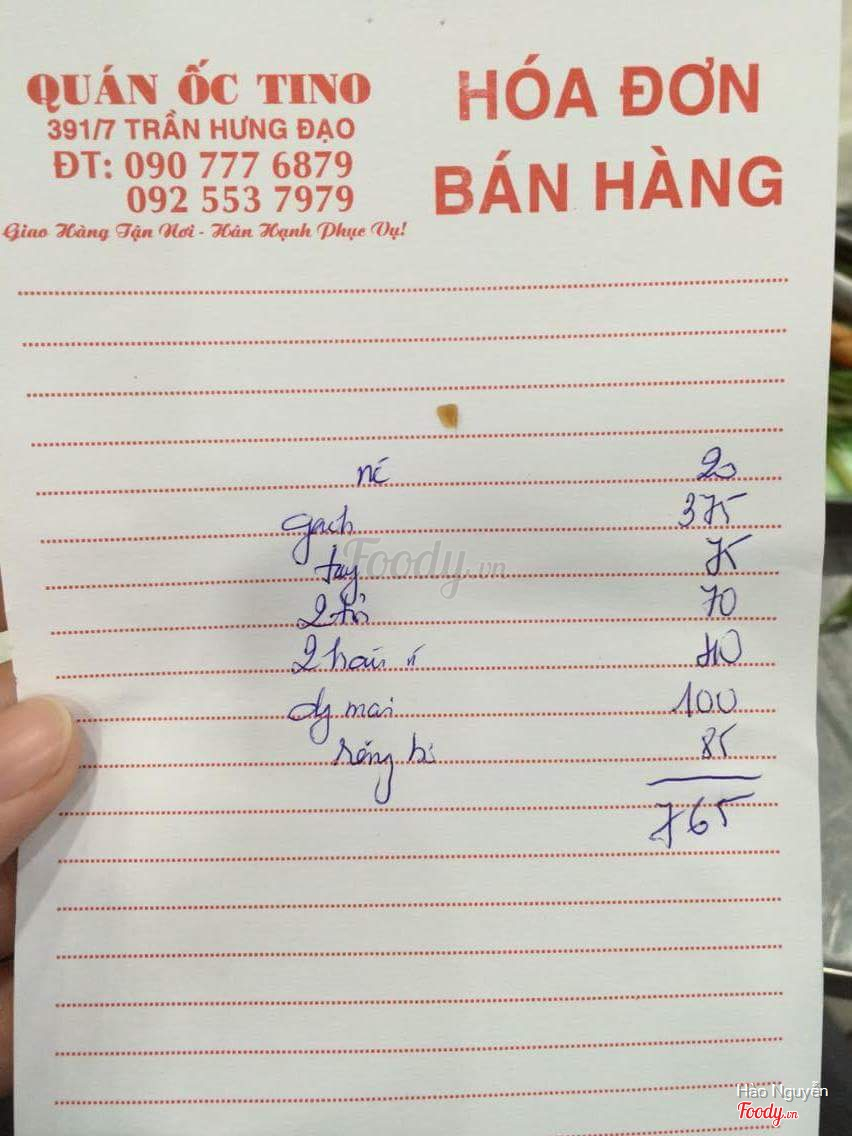 QUÁN ỐC TINO
391/7 TRẦN HƯNG ĐẠO
ĐT: 090 777 6879
092 553 7979
Giao Hàng Tận Nơi - Hân Hạnh Phục Vụ!
HÓA ĐƠN
BÁN HÀNG
20
gạch 375
tay 75
2 70
2 40
mai 100
85
765
Foody.vn
Hào Nguyễn
Foody.vn